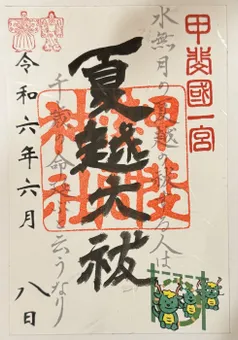 甲斐國一宮
水無月の夏越の祓する人は
夏越大祓
千歳の命延ぶと云うなり
令和六年六月
八日